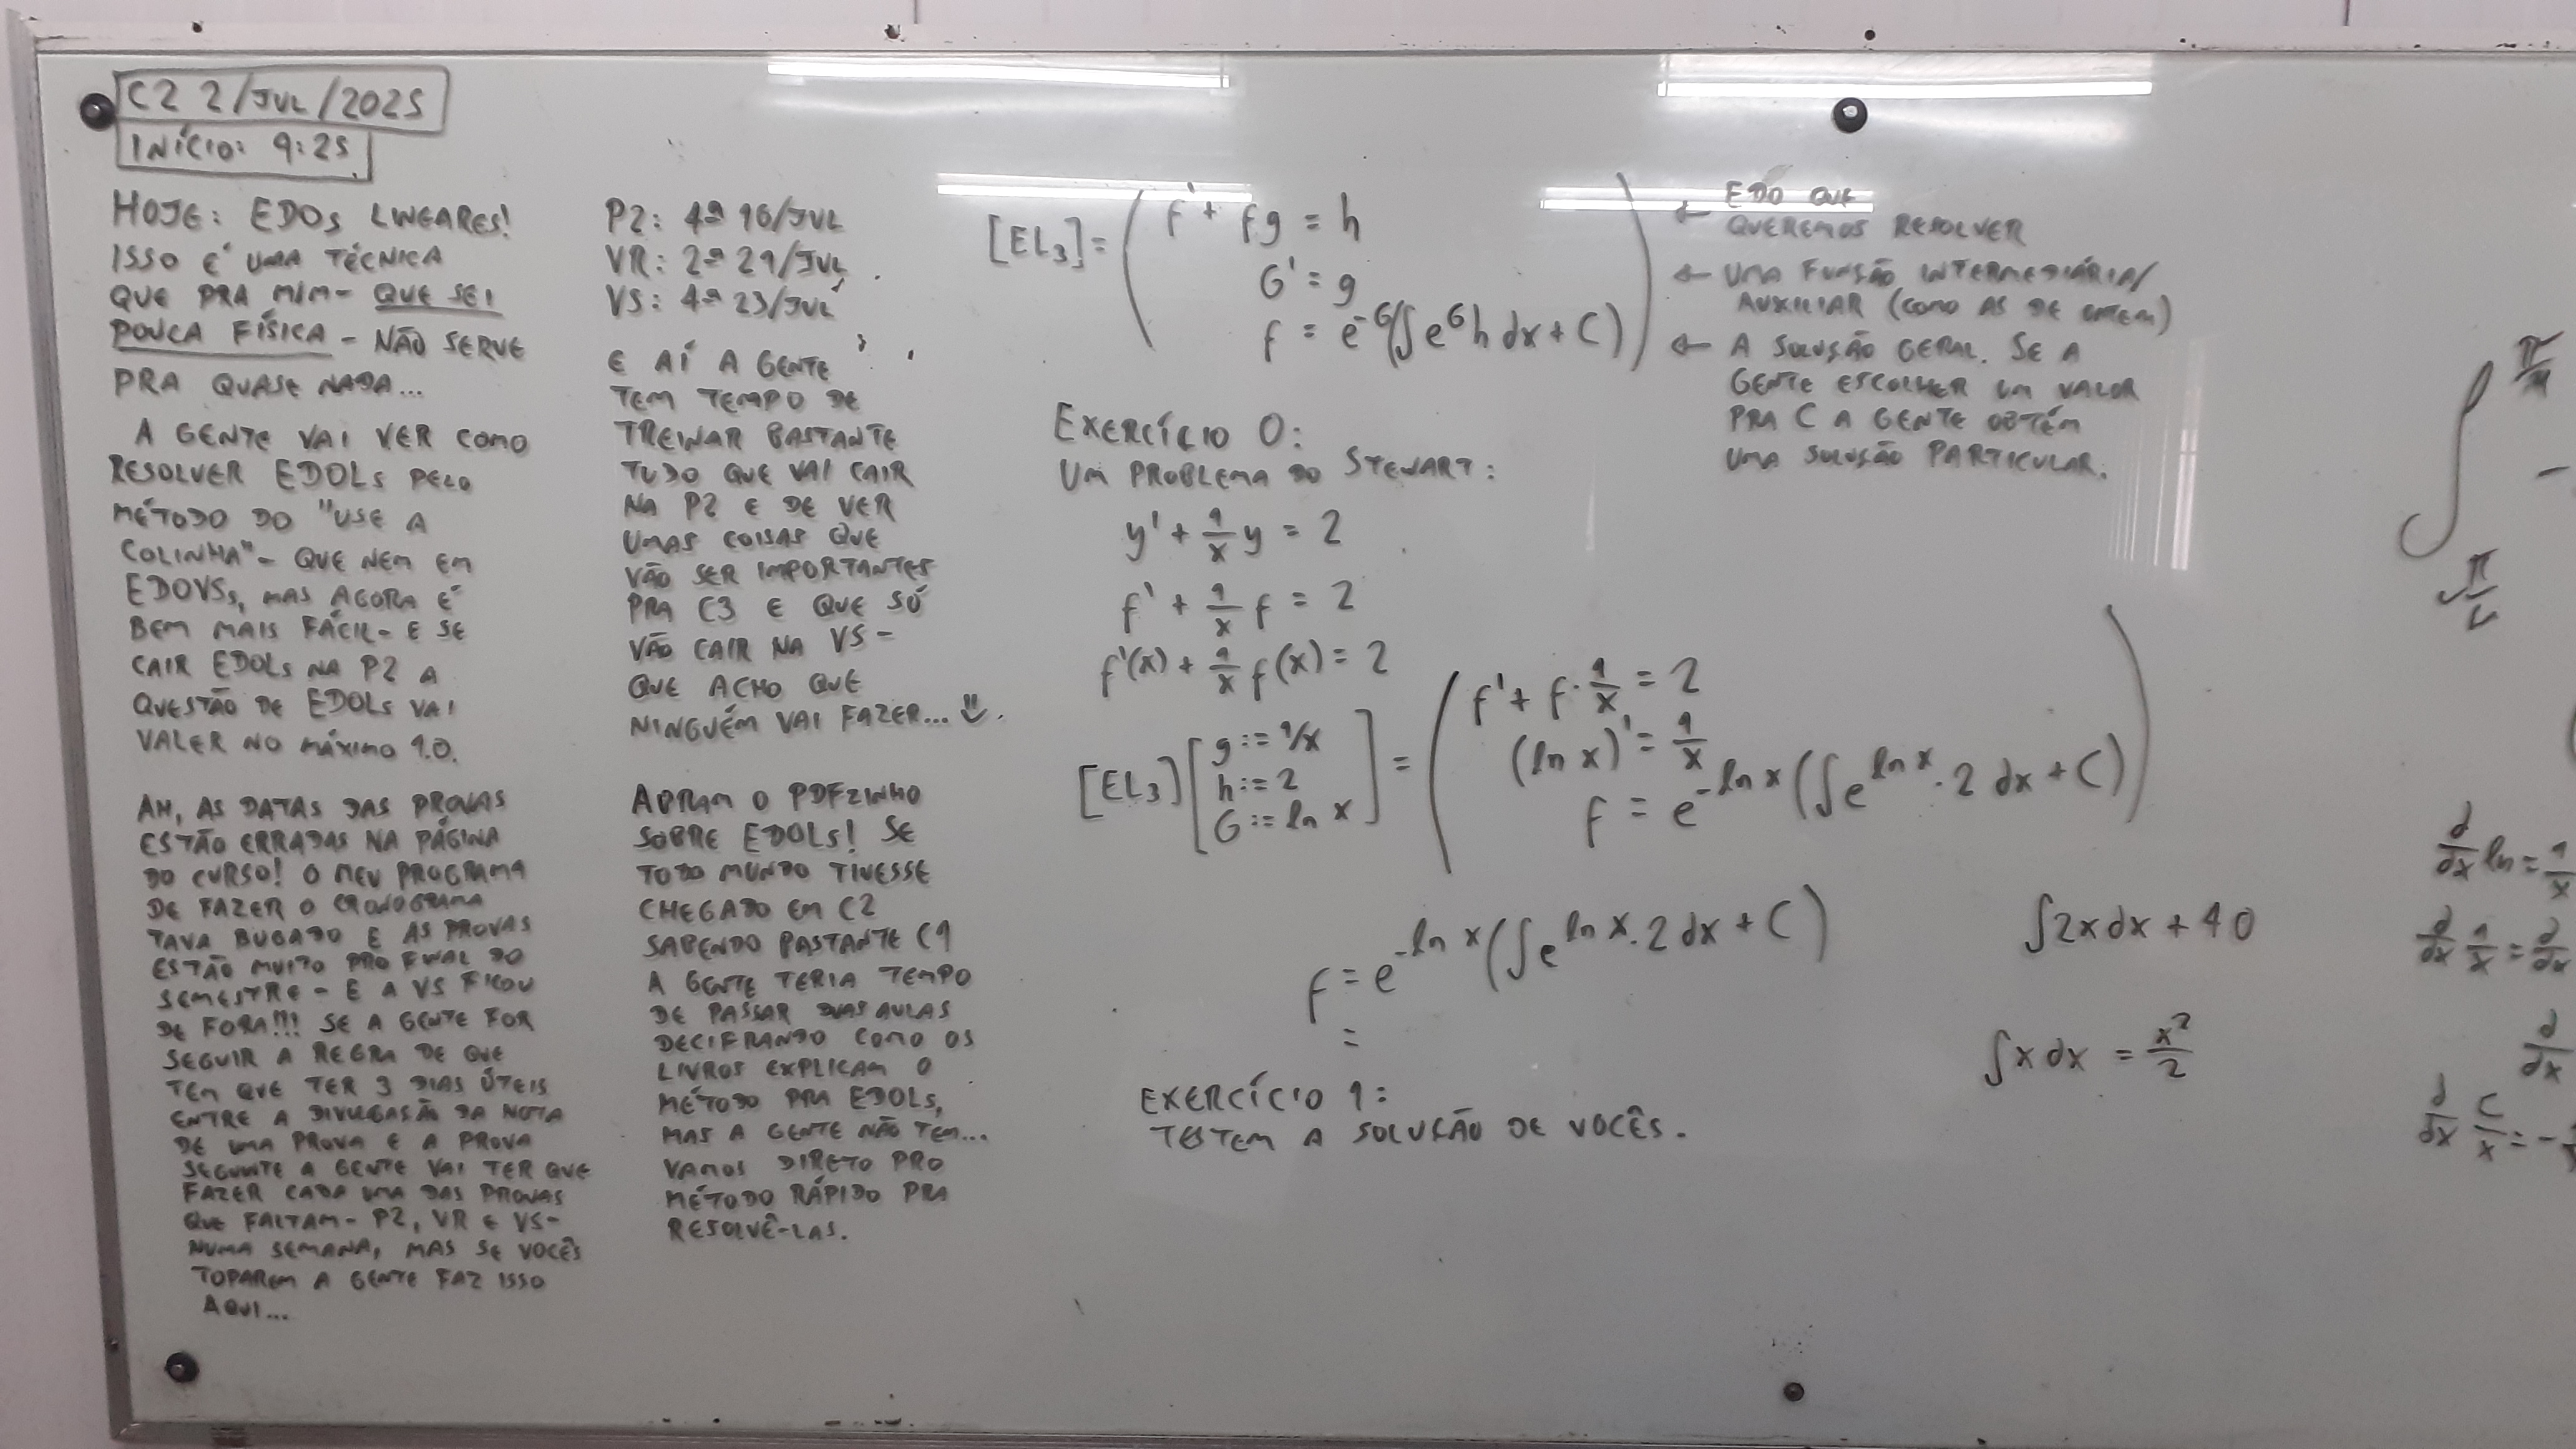 C2 2/JUL/2025
INÍCIO: 9:25
HOJE: EDOS LINEARES!
ISSO É UMA TÉCNICA
QUE PRA MIM - QUE SEI
POUCA FÍSICA - NÃO SERVE
PRA QUASE NADA...
A GENTE VAI VER COMO
RESOLVER EDOLS PELO
MÉTODO DO "USE A
COLINHA" - QUE NEM EM
EDOVSs, MAS AGORA É
BEM MAIS FÁCIL - E SE
CAIR EDOLs NA P2 A
QUESTÃO DE EDOLs VAI
VALER NO MÁXIMO 1.0.
AH, AS DATAS DAS PROVAS
ESTÃO ERRADAS NA PÁGINA
DO CURSO! O MEU PROGRAMA
DE FAZER O CRONOGRAMA
TAVA BUGADO E AS PROVAS
ESTÃO MUITO PRO FINAL DO
SEMESTRE - E A VS FICOU
DE FORA!!! SE A GENTE FOR
SEGUIR A REGRA DE QUE
TEM QUE TER 3 DIAS ÚTEIS
ENTRE A DIVULGAÇÃO DA NOTA
DE UMA PROVA E A PROVA
SEGUINTE A GENTE VAI TER QUE
FAZER CADA UMA DAS PROVAS
QUE FALTAM - P2, VR E VS -
NUMA SEMANA, MAS SE VOCÊS
TOPAREM A GENTE FAZ ISSO
AQUI...
P2: 4ª 16/JUL
VR: 2ª 21/JUL
VS: 4ª 23/JUL
E AÍ A GENTE
TEM TEMPO DE
TREINAR BASTANTE
TUDO QUE VAI CAIR
NA P2 E DE VER
UMAS COISAS QUE
VÃO SER IMPORTANTES
PRA C3 E QUE SÓ
VÃO CAIR NA VS -
QUE ACHO QUE
NINGUÉM VAI FAZER...
ABRAM O PDFZINHO
SOBRE EDOLS! SE
TODO MUNDO TIVESSE
CHEGADO EM C2
SABENDO BASTANTE C1
A GENTE TERIA TEMPO
DE PASSAR DUAS AULAS
DECIFRANDO COMO OS
LIVROS EXPLICAM O
MÉTODO PRA EDOLS,
MAS A GENTE NÃO TEM...
VAMOS DIRETO PRO
MÉTODO RÁPIDO PRA
RESOLVÊ-LAS.
[EL₃] = ( f' + fg = h
G' = g
f = e^{-G}(∫e^G h dx + C) )
← EDO QUE
QUEREMOS RESOLVER
← UMA FUNÇÃO INTERMEDIÁRIA/
AUXILIAR (COMO AS DE ONTEM)
← A SOLUÇÃO GERAL. SE A
GENTE ESCOLHER UM VALOR
PRA C A GENTE OBTÉM
UMA SOLUÇÃO PARTICULAR.
EXERCÍCIO 0:
UM PROBLEMA DO STEWART:
y' + 1/x y = 2
f' + 1/x f = 2
f'(x) + 1/x f(x) = 2
[EL₃] [ g := 1/x
h := 2
G := ln x ] = ( f' + f · 1/x = 2
(ln x)' = 1/x
f = e^{-ln x}(∫e^{ln x} · 2 dx + C) )
f = e^{-ln x}(∫e^{ln x} · 2 dx + C)
=
EXERCÍCIO 1:
TESTEM A SOLUÇÃO DE VOCÊS.
∫2x dx + 40
∫x dx = x²/2
d/dx ln = 1/x
d/dx 1/x = d/dx
d/dx
d/dx C/x = -